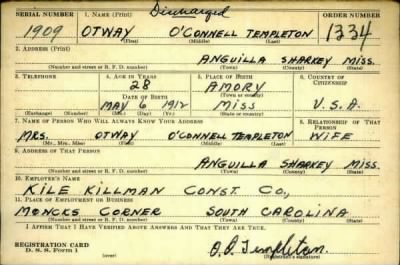 Discharged
SERIAL NUMBER 1. NAME (Print) ORDER NUMBER
1909 OTWAY O'CONNELL TEMPLETON 1334
(First) (Middle) (Last)
2. ADDRESS (Print)
ANGUILLA SHARKEY MISS.
(Number and street or R. F. D. number) (Town) (County) (State)
3. TELEPHONE 4. AGE IN YEARS 5. PLACE OF BIRTH 6. COUNTRY OF CITIZENSHIP
28 AMORY
DATE OF BIRTH (Town or county)
MAY 6 1912 MISS U.S.A.
(Exchange) (Number) (Mo.) (Day) (Yr.) (State or country)
7. NAME OF PERSON WHO WILL ALWAYS KNOW YOUR ADDRESS 8. RELATIONSHIP OF THAT PERSON
MRS. OTWAY O'CONNELL TEMPLETON WIFE
(Mr., Mrs., Miss) (First) (Middle) (Last)
9. ADDRESS OF THAT PERSON
ANGUILLA SHARKEY MISS.
(Number and street or R. F. D. number) (Town) (County) (State)
10. EMPLOYER'S NAME
KILE KILLMAN CONST. CO,
11. PLACE OF EMPLOYMENT OR BUSINESS
MONCKS CORNER SOUTH CAROLINA
(Number and street or R. F. D. number) (Town) (County) (State)
I AFFIRM THAT I HAVE VERIFIED ABOVE ANSWERS AND THAT THEY ARE TRUE.
REGISTRATION CARD
D. S. S. Form 1 (over) O. O. Templeton
(Registrant's signature)